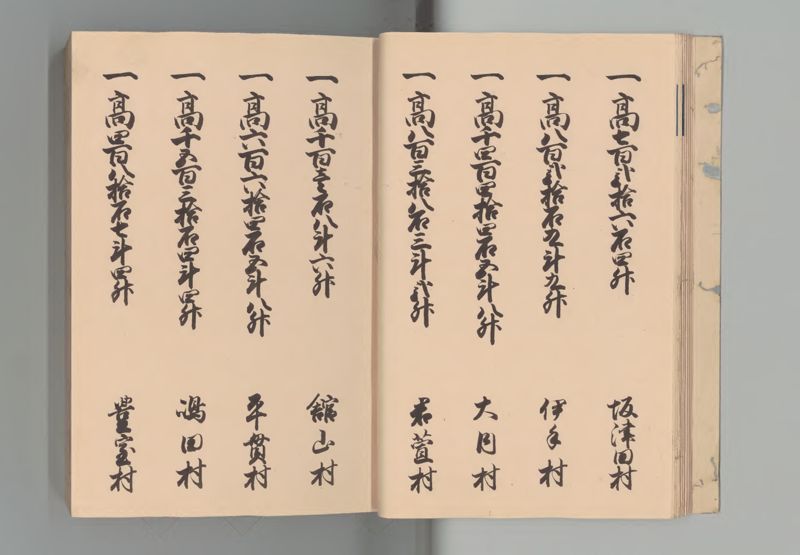 一高七百弐拾六石四升 坂津田村
一高八百弐拾石五斗九升 伊手村
一高千四百四拾四石五斗八升 大月村
一高八百三拾八石三斗弐升 君萱村
一高千百壱石八斗六升 舘山村
一高六百六拾四石五斗八升 平貫村
一高千五百三拾石四斗四升 嶋田村
一高四百八拾石七斗四升 豊室村